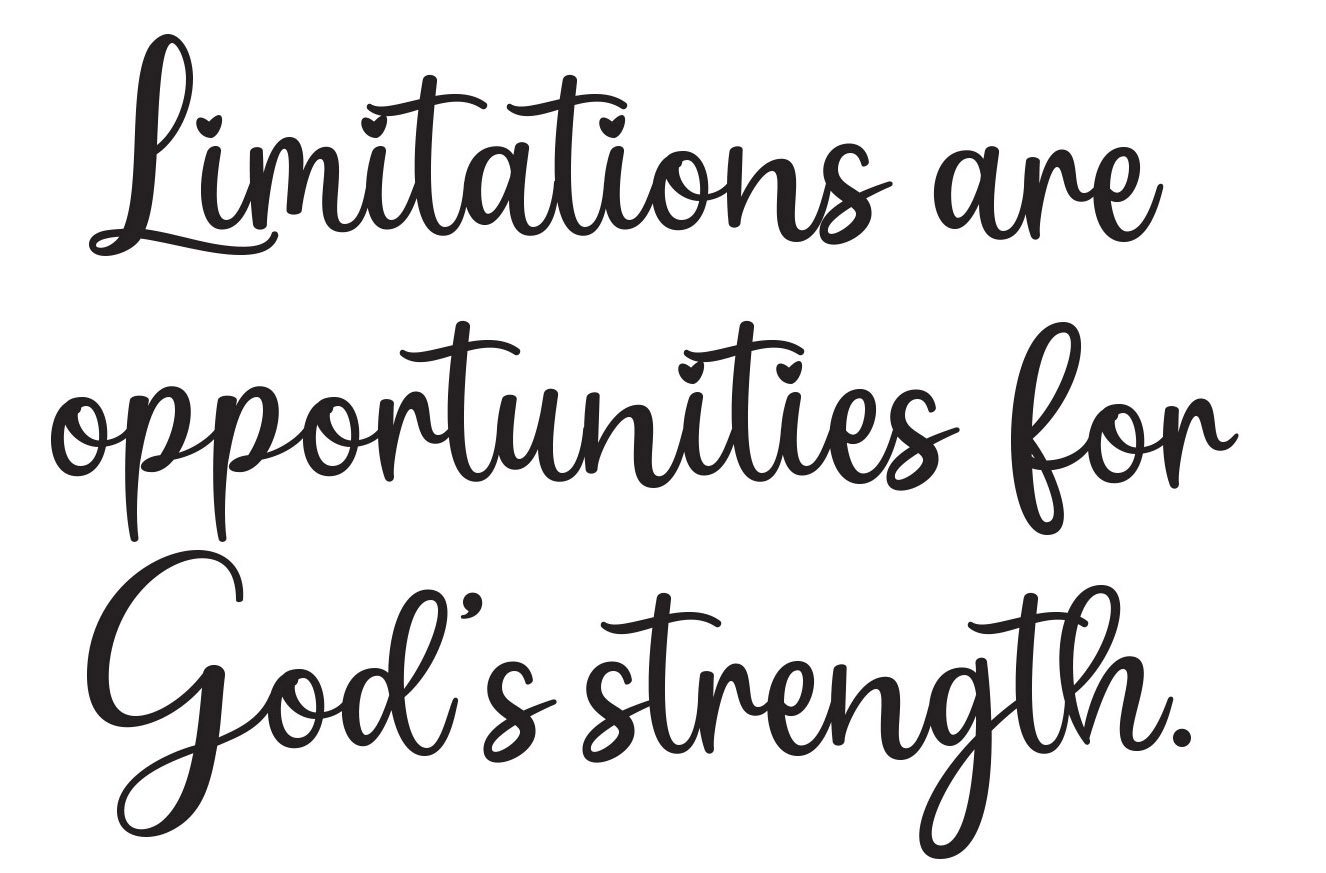 Limitations are
opportunities for
God’s strength.